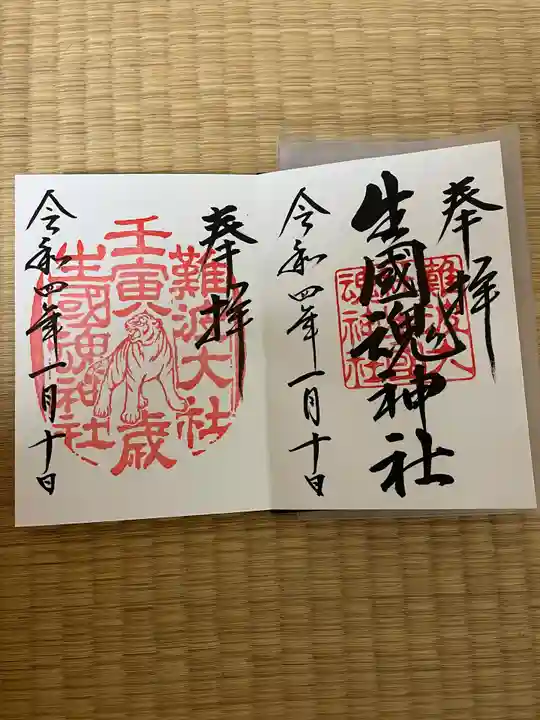 奉拝
生國魂神社
難波大社
生國魂神社
令和四年一月十日
奉拝
難波大社
壬寅歳
生國魂神社
令和四年一月十日